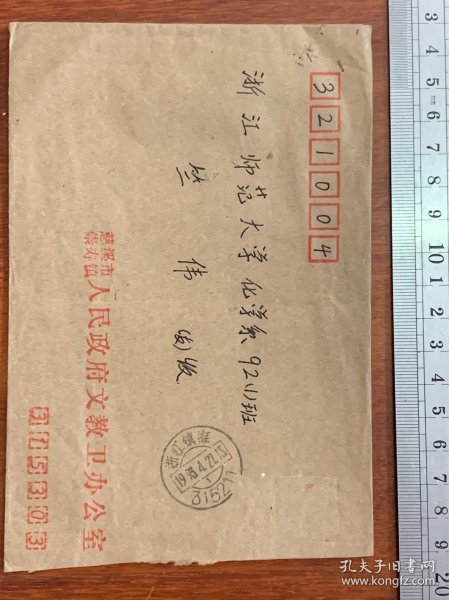 321004
浙江师范大学化学系92(1)班
竺 伟 收
慈溪市
崇寿镇
人民政府文教卫办公室
315303
浙江镇海
3 4 5 6 7 8 9 10 1 2 3 4 5 6 7 8 9 20
孔夫子旧书网
www.kongfz.com